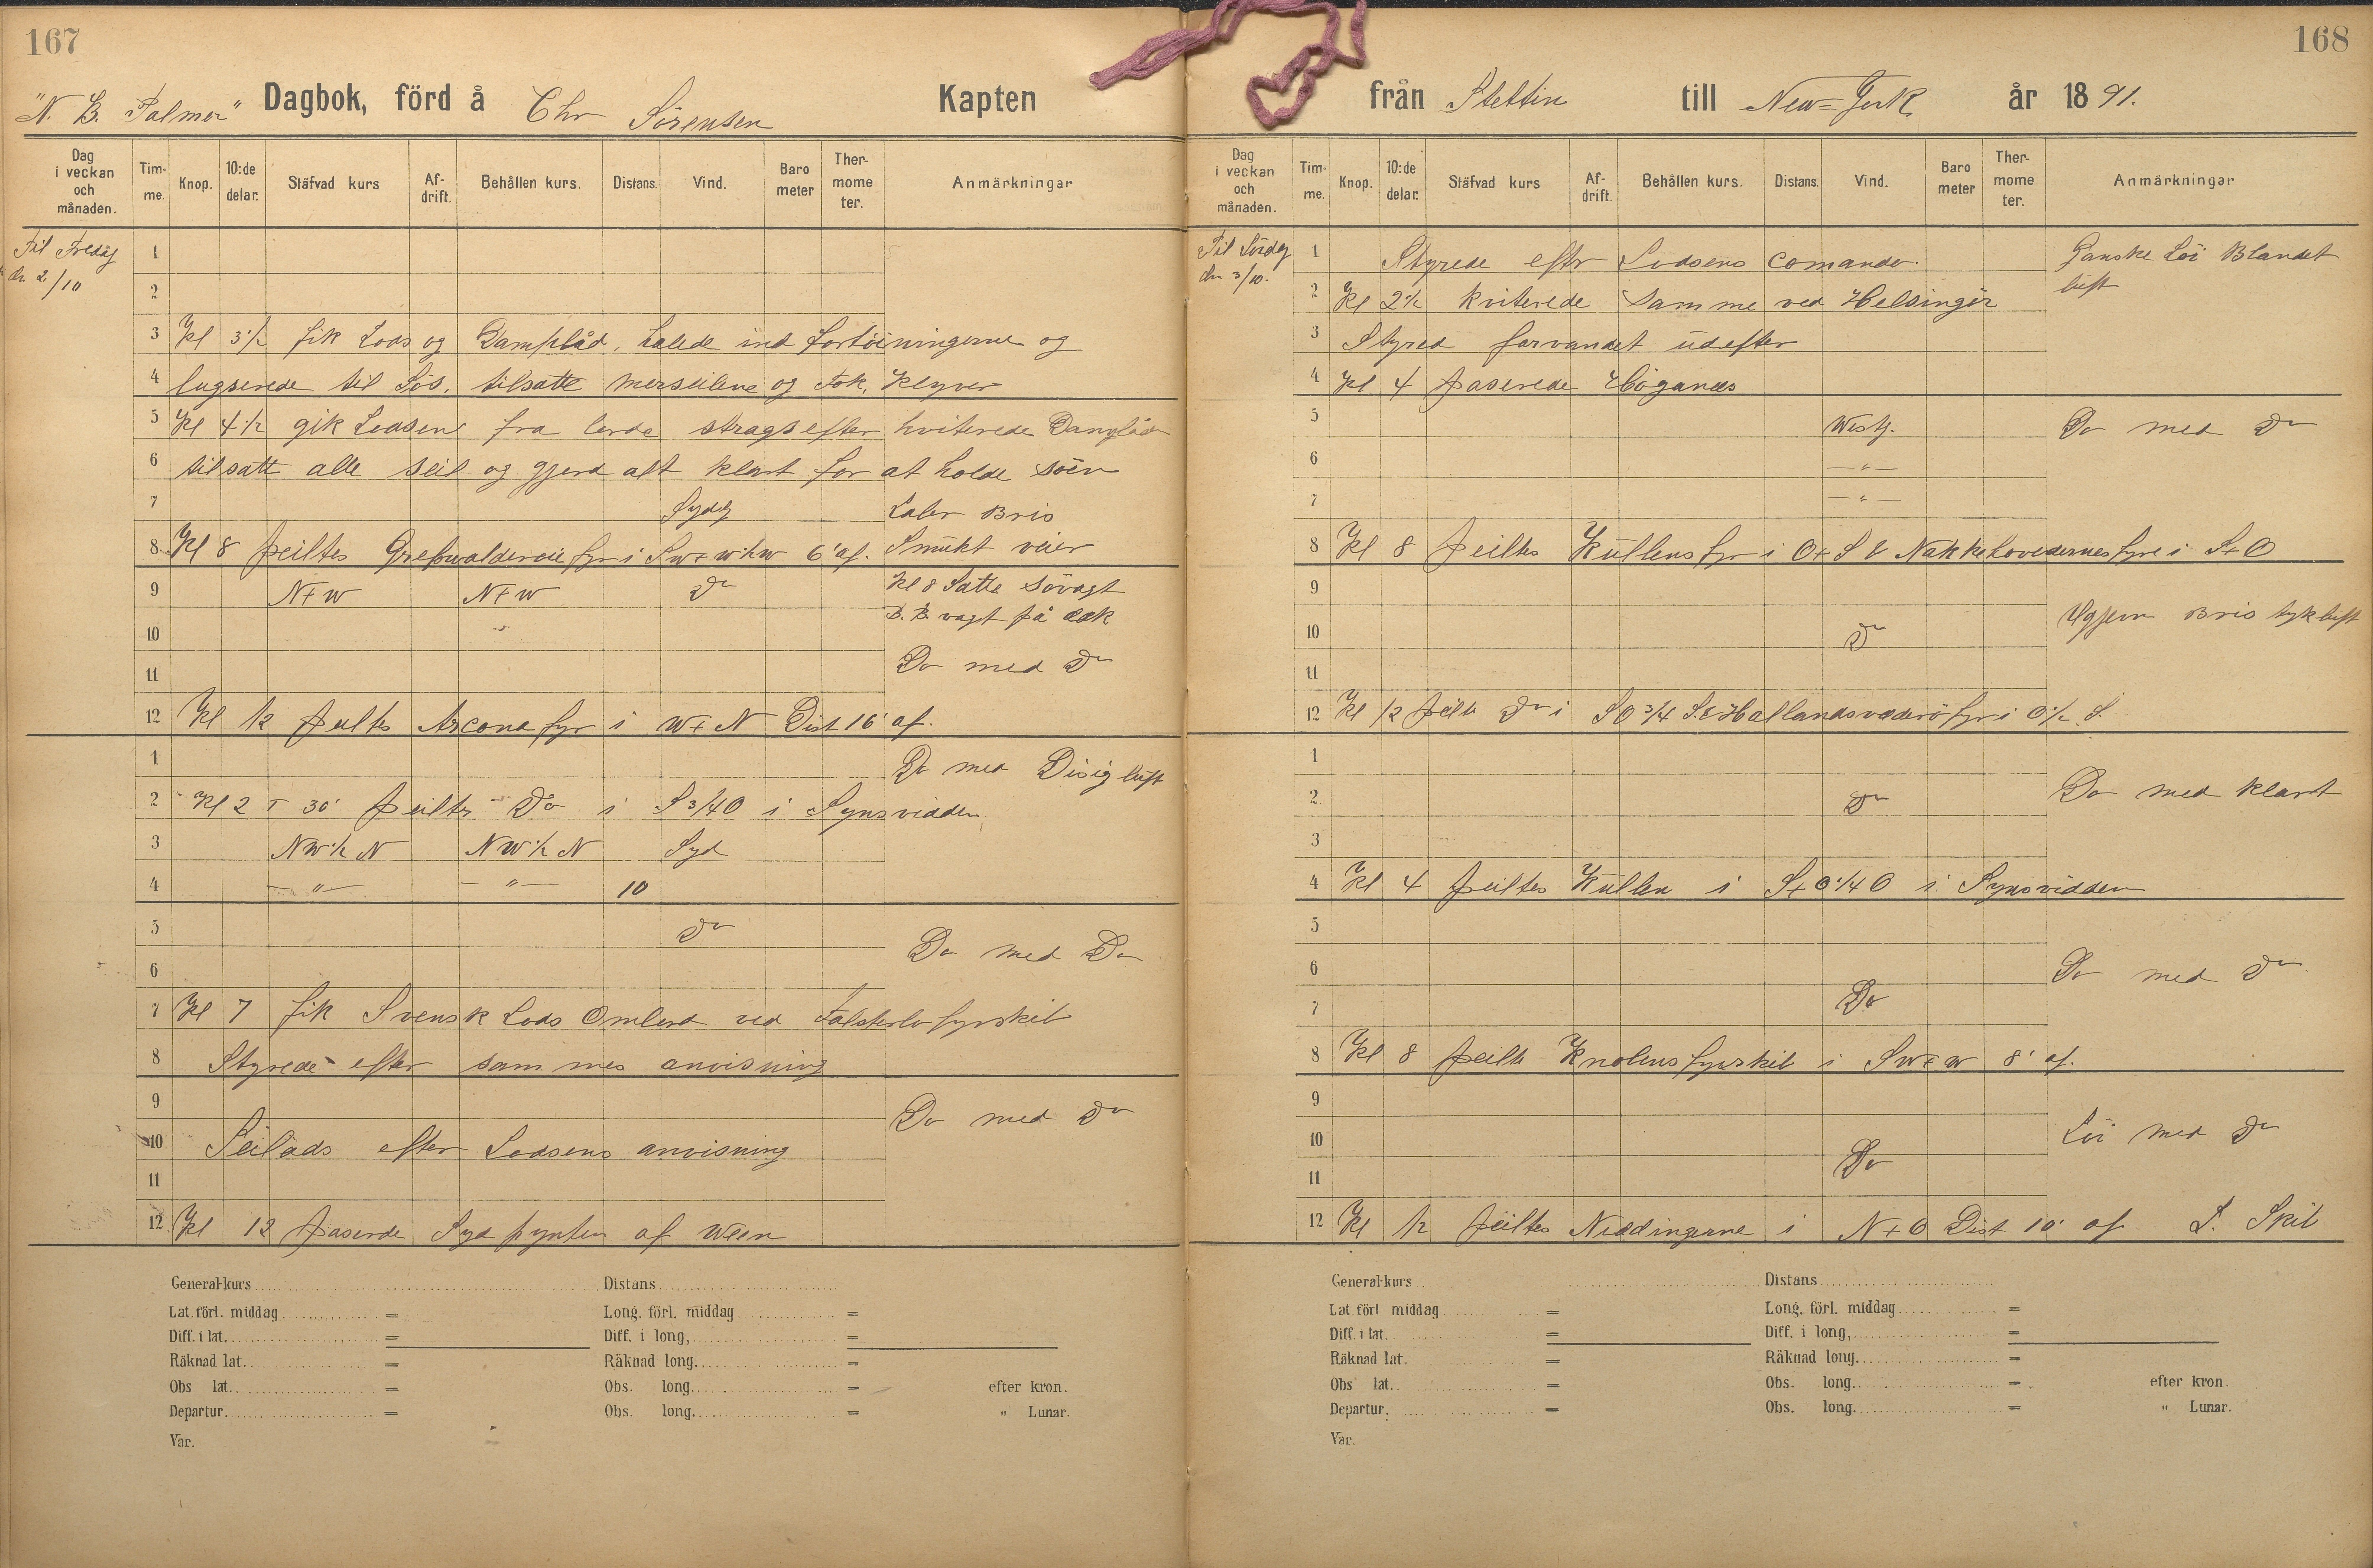 167
"N. B. Palmer" Dagbok, förd å Chr Sörensen Kapten
Dag i veckan och månaden. Tim-me. Knop. 10:de delar. Stäfvad kurs Af-drift. Behållen kurs. Distans. Vind. Baro meter Ther-mome ter. Anmärkningar
Til Fredag
den 2/10
1
2
3 Kl 3½ fik Lods og Dampbåd, halede ind fortöiningerne og
4 bugserede til Sös. tilsatte merseilene og Fok, Klyver
5 Kl 4½ gik Lodsen fra borde stragsefter kviterede
6 tilsatt alle seil og gjord alt klart for at holde söen
7 Sydlg Laber Bris
8 Kl 8 peiltes fyr i SW+W½W 6' af. Smukt veier
9 N+W N+W Do Kl 8 Satte Sövagt
B. B. vagt på dæk
10
11 Do med Do
12 Kl 12 peiltes Arcona fyr i W+N Dist 16' af.
1 Do med Disig luft
2 Kl 2 T 30' peiltes Do i S¾O i Synsvidden
3 NW½N NW½N Syd
4 —"— —"— 10
5 Do
Do med Do
6
7 Kl 7 fik Svensk Lods Ombord ved Falsterbo fyrskib
8 Styrede efter sammes anvisning
9 Do med Do
10 Seilads efter Lodsens anvisning
11
12 Kl 12 paserde Sydpynten af Ween
General-kurs Distans
Lat. förl. middag = Long. förl. middag =
Diff. i lat. = Diff. i long, =
Räknad lat. = Räknad long. =
Obs lat. = Obs. long. = efter kron.
Departur. = Obs. long. = " Lunar.
Var.
168
från Stettin till New-York år 1891.
Dag i veckan och månaden. Tim-me. Knop. 10:de delar. Stäfvad kurs Af-drift. Behållen kurs. Distans. Vind. Baro meter Ther-mome ter. Anmärkningar
Til Lördg
den 3/10.
1 Styrede eftr Lodsens comando. Ganske Löi Blandet
2 Kl 2½ kviterede samme ved Helsingör luft
3 Styred farvandet udefter
4 Kl 4 paserede Höganæs
5 Westlg. Do med Do
6 —"—
7 —"—
8 Kl 8 peiltes Kullens fyr i O+S & Nakkehovedernes fyre i S+O
9
Bris tykluft
10 Do
11
12 Kl 12 peilte Do i SO¾S. & Hallandsvaderö fyr i O½S.
1
2 Do Do med klart
3
4 Kl 4 peiltes Kullen i S+O¼O i Synsvidden
5
6 Do med Do
7 Do
8 Kl 8 peilte Knobens fyrskib i SW+W 8' af.
9
10 Löi med Do
11 Do
12 Kl 12 peiltes Niddingerne i N+O Dist 10' af S. Skib
General-kurs Distans
Lat förl middag = Long. förl. middag =
Diff. i lat. = Diff. i long, =
Räknad lat. = Räknad long. =
Obs lat. = Obs. long. = efter kron.
Departur. = Obs. long. = " Lunar.
Var.